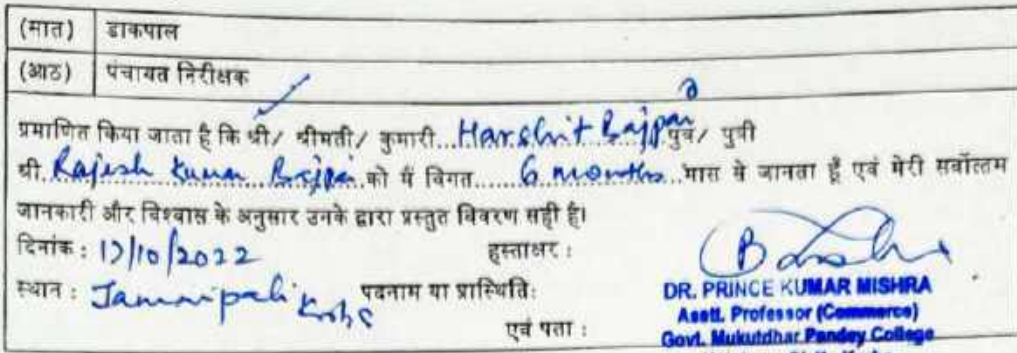 (सात) डाकपाल
(आठ) पंचायत निरीक्षक
प्रमाणित किया जाता है कि श्री/ श्रीमती/ कुमारी...Harshit Bajpai पुत्र/ पुत्री
श्री Rajesh Kumar Bajpai को मैं विगत......6 months...मास से जानता हूँ एवं मेरी सर्वोत्तम
जानकारी और विश्वास के अनुसार उनके द्वारा प्रस्तुत विवरण सही है।
दिनांक : 17/10/2022 हस्ताक्षर :
स्थान : Jamnipali पदनाम या प्रास्थिति:
DR. PRINCE KUMAR MISHRA
Asstt. Professor (Commerce)
एवं पता : Govt. Mukutdhar Pandey College